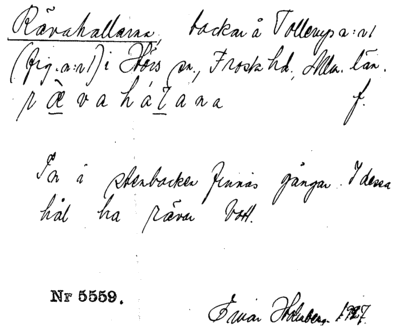 Rävahallarna, backar å Tollerup a: n1
(fig. a: n1) i Hörs sn., Frosta hd., Mlm. län.
rævahálana f.
I en stenbacke finnas gångar. I dessa
hål ha rävar bott.
Nr 5559.
Ivar Holmberg. 1927.